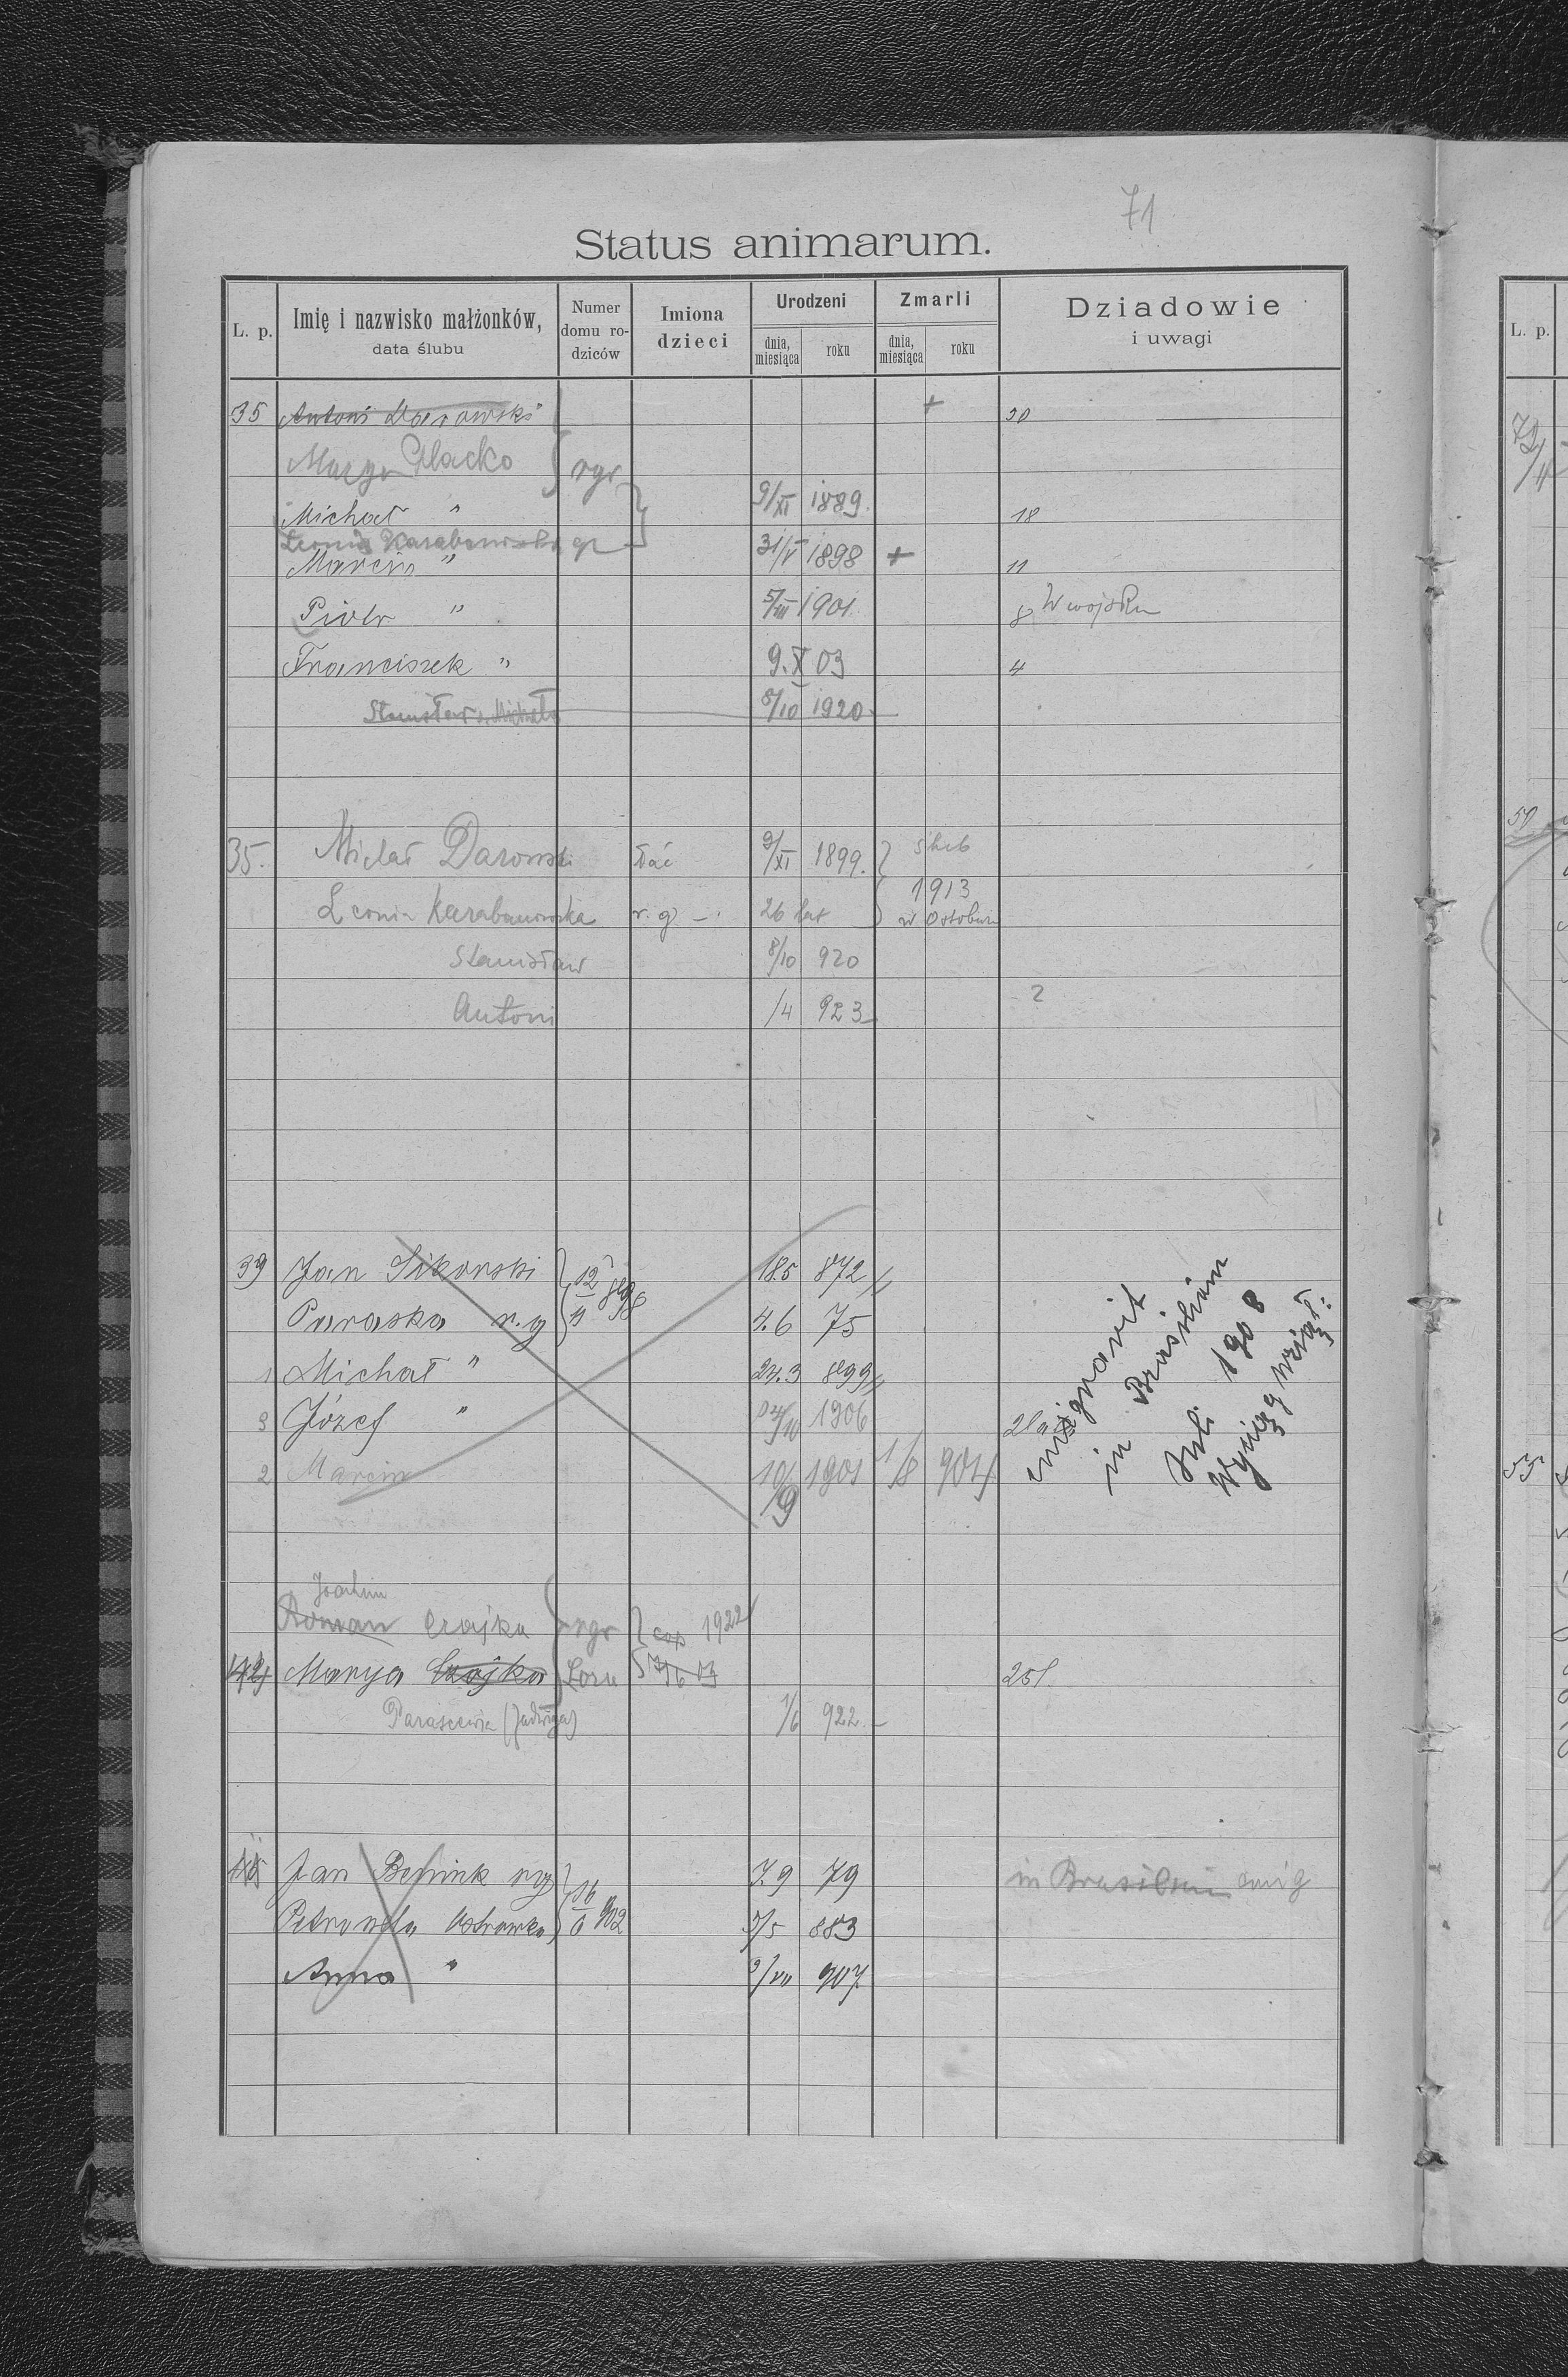 71
Status animarum.
L. p. Imię i nazwisko małżonków, data ślubu Numer domu rodziców Imiona dzieci Urodzeni dnia, miesiąca roku Zmarli dnia, miesiąca roku Dziadowie i uwagi
35 Antoni Darowski + 30
Marya Placko rgr
Michał " 9/XI 1889. 18
Leonia Karabanowska gr
Marcin " 31/V 1898 + 11
Piotr " 5/III 1901 8 W wojsku
Franciszek " 9.X 03 4
Stanisław s. Michała 8/10 1920
35. Michał Darowski łać 9/XI 1899. ślub
1913
Leonia Karabanowska r. g. 26 lat w
Stanisław 8/10 920
Antoni /4 923 2
39 Jan Sikorski 12/II 898 18.5 872
Paraska r. g 4.6 75
1 Michał " 24.3 899
3 Józef " 1906
2 Marcin 10/9 1901 1/8 904
emigravit
in Brasiliam
Juli 1908
Wyciąg wziął.
Joachim
Roman Czajka rgr cop 1922
42 Marya Czajka 03 25
Parascewia (Jadwiga) 1/6 922
Jan Benink rg 16/II 902 7.9 79 in Brasiliam emig
Petronela 3/5 883
Anna " 3/VII 907
L. p.
72/4
55